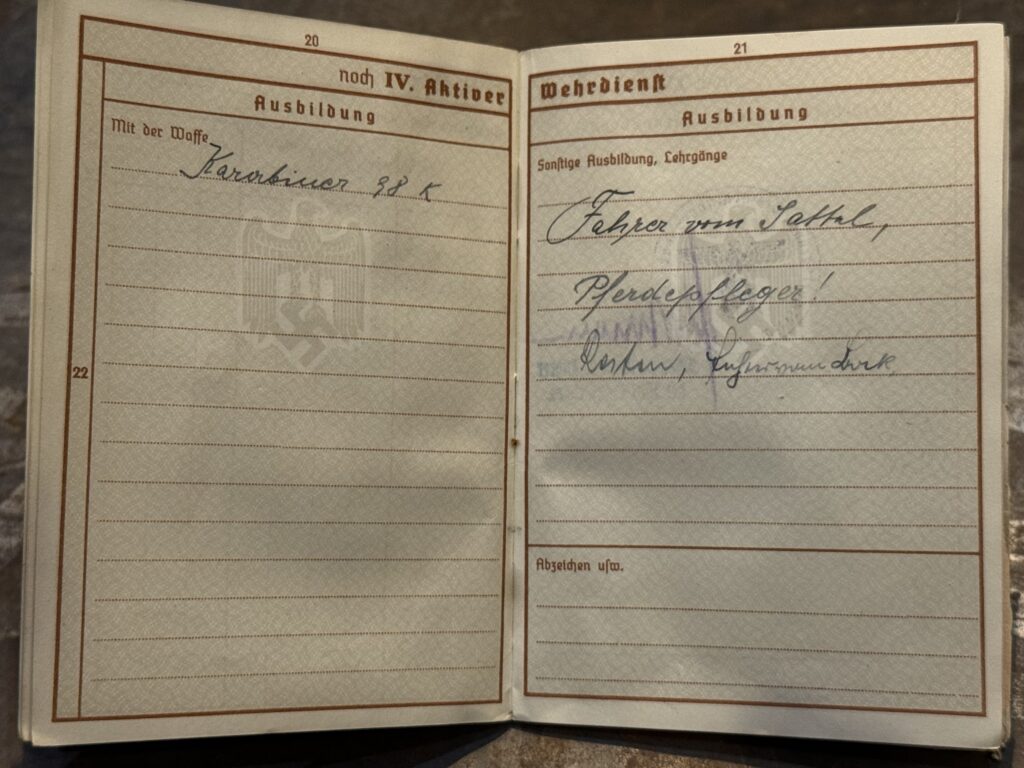 20
noch IV. Aktiver
Ausbildung
Mit der Waffe
Karabiner 98 K
22
21
Wehrdienst
Ausbildung
Sonstige Ausbildung, Lehrgänge
Fahrer vom Sattel,
Pferdepfleger!
Fahrer vom Bock,
Abzeichen usw.